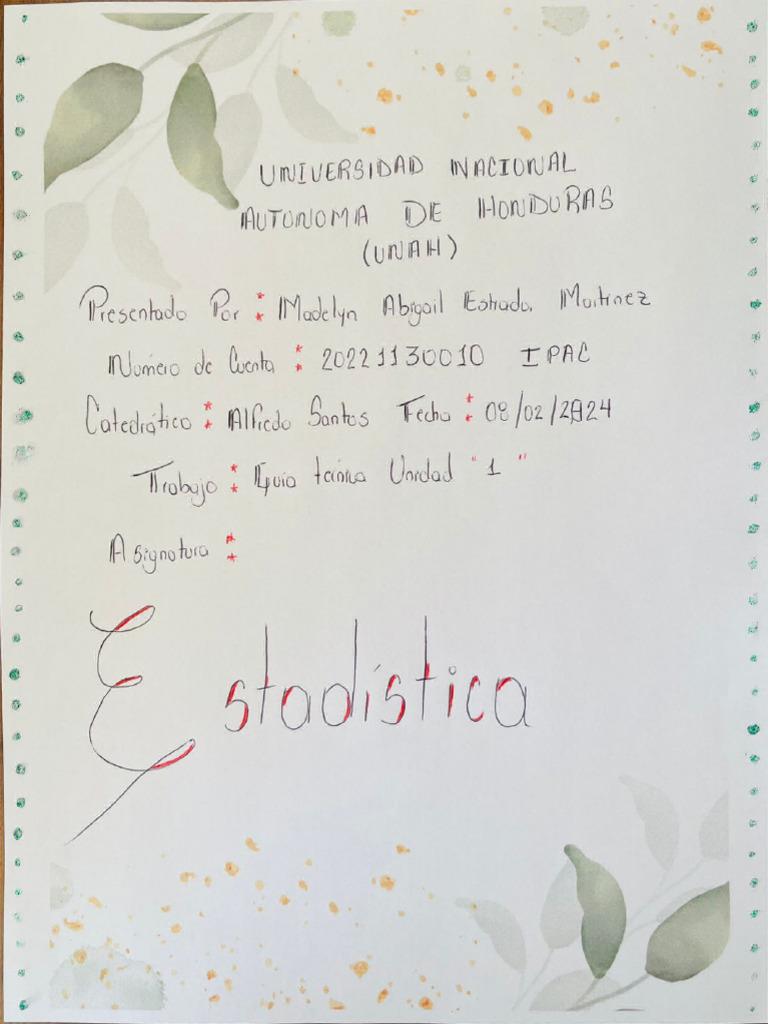 UNIVERSIDAD NACIONAL
AUTONOMA DE HONDURAS
(UNAH)
Presentado Por : Madelyn Abigail Estrada Martinez
Número de Cuenta : 20221130010 I PAC
Catedrático : Alfredo Santos Fecha : 08/02/2024
Trabajo : Guía técnica Unidad "1"
Asignatura :
Estadística